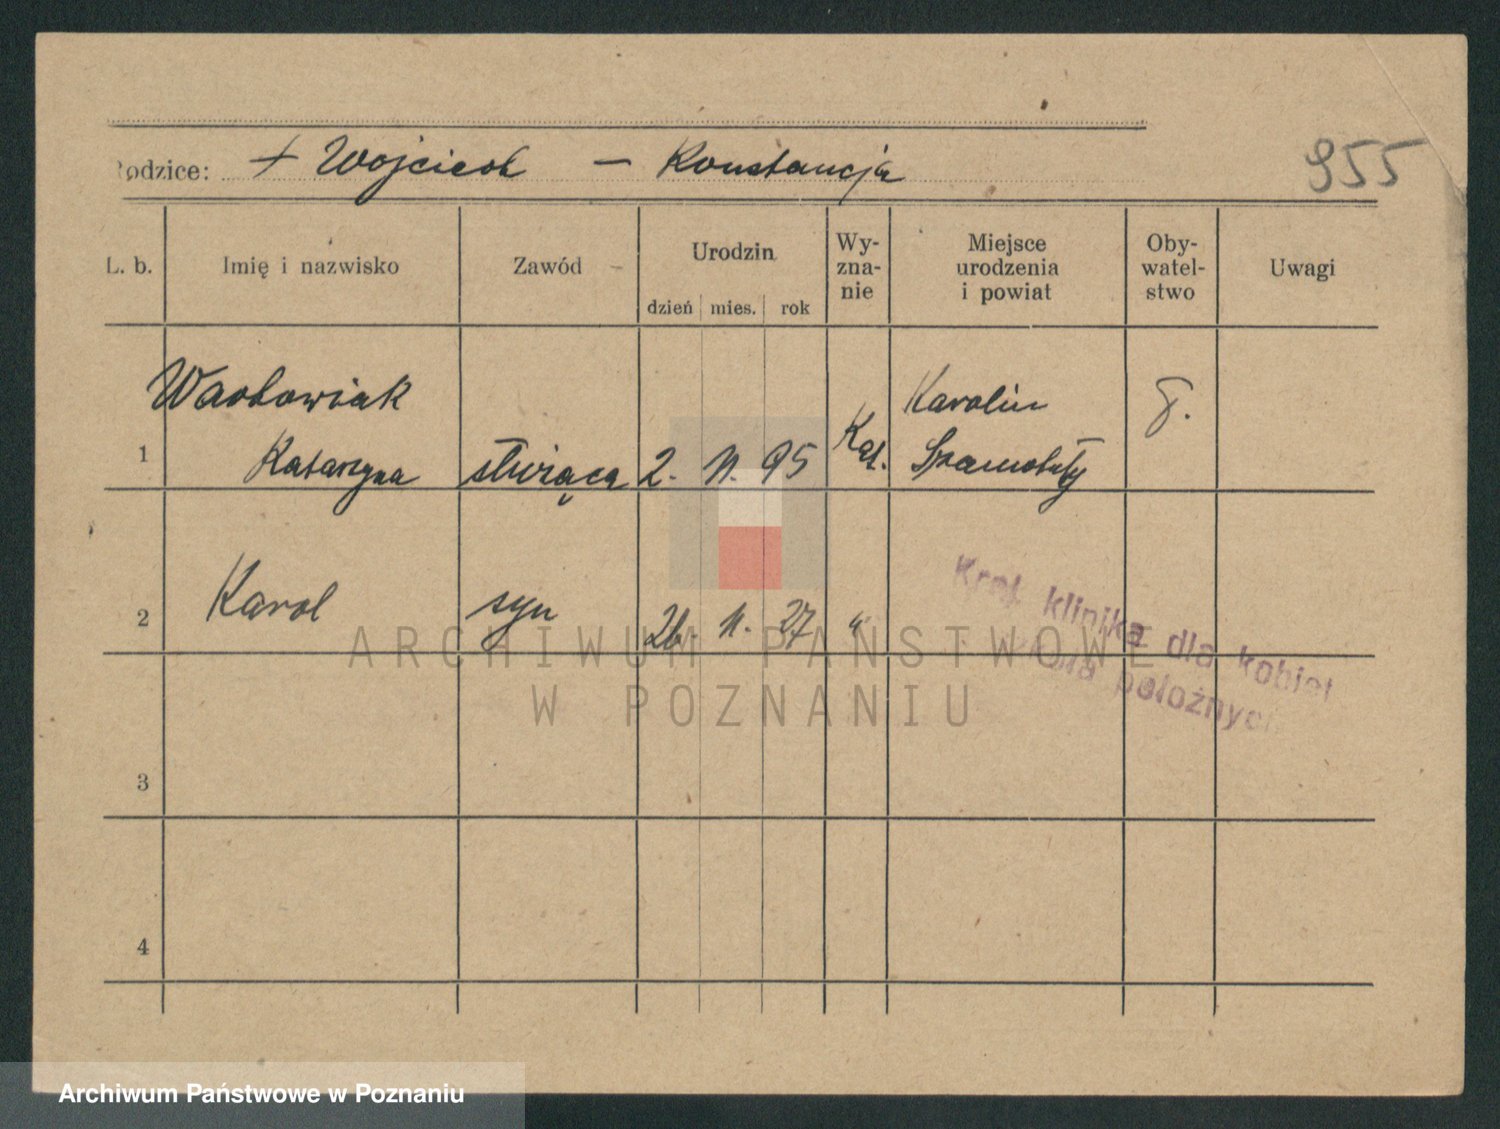 Rodzice: + Wojciech – Konstancja
955
L. b. Imię i nazwisko Zawód Urodzin Wy-zna-nie Miejsce urodzenia i powiat Oby-watel-stwo Uwagi
dzień mies. rok
Wachowiak Karolin
1 Katarzyna służąca 2. 11. 95 Kat. Szamotuły
2 Karol syn 26. 11. 27 "
Kraj. klinika dla kobiet
położnych
3
4
ARCHIWUM PAŃSTWOWE
W POZNANIU
Archiwum Państwowe w Poznaniu